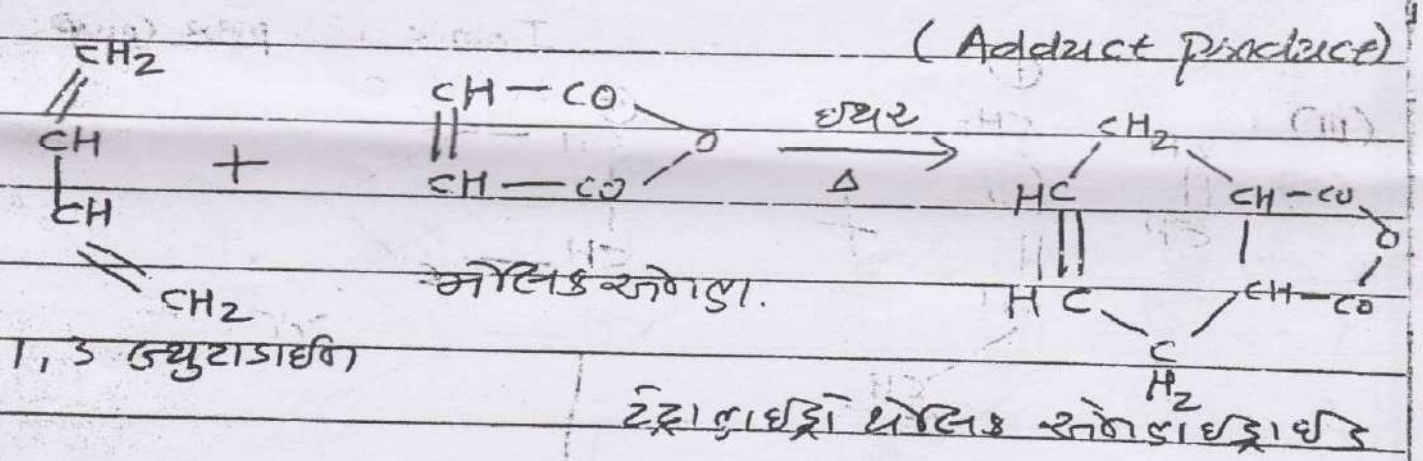 (Adduct product)
CH2 CH CH CH2 + CH — CO CH — CO O ઈથર Δ CH2 HC CH — CO O HC CH — CO C H2
મેલિક એનહા.
1, 3 બ્યુટાડાઈન
ટેટ્રા હાઈડ્રો થેલિક એનહાઈડ્રાઈડ